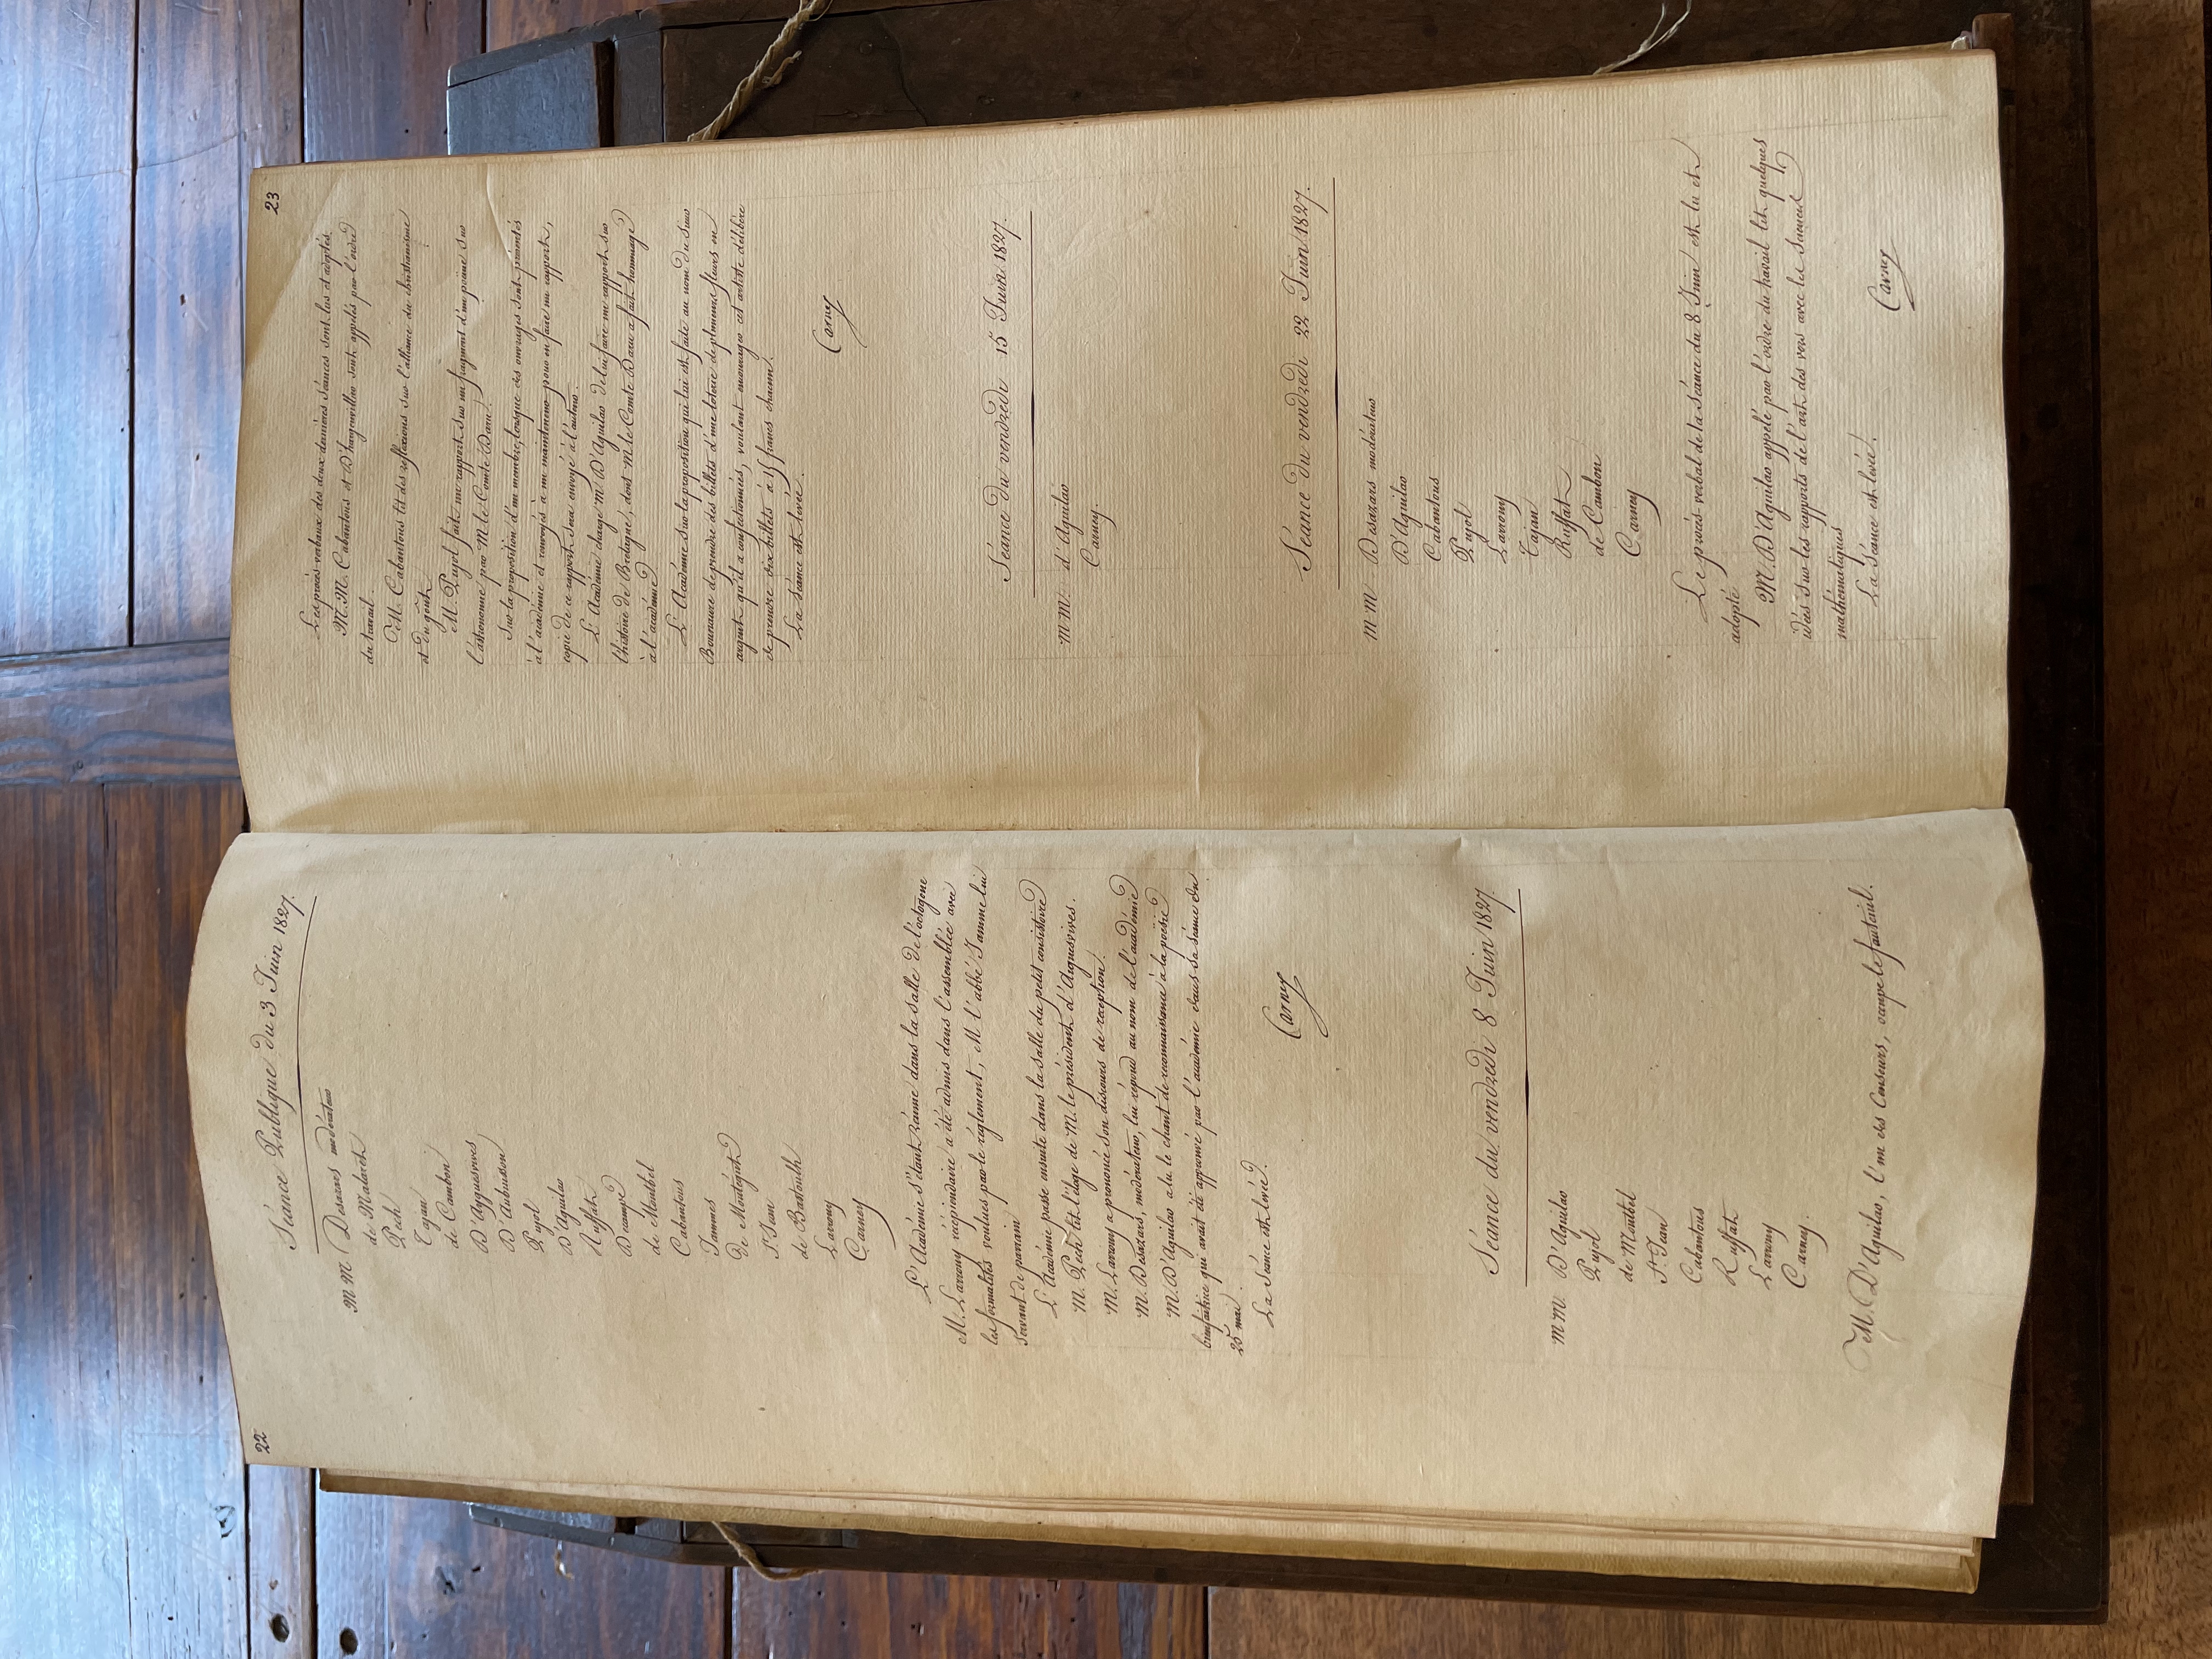 22
Séance Publique du 3 Juin 1827.
M M Desazars modérateur
de Malaret
Pech
Tajan
de Cambon
D'Aguesvives
D'Aubuisson
Pujol
D'Aguilar
Ruffat
Decampe
de Montbel
Cabantous
Jammes
De Montégut
St Jean
de Bastoulh
Larrouy
Carney
L'Académie s'étant réunie dans la salle de l'octogone
M. Larrouy récipiendaire a été admis dans l'assemblée avec
les formalités voulues par le réglement, M l'abbé Jamme lui
servant de parrain
L'Académie passe ensuite dans la salle du petit consistoire
M. Pech lit l'éloge de M. le président d'Aiguesvives.
M. Larrouy a prononcé son discours de réception.
M. Desazars, modérateur, lui répond au nom de l'académie
M. D'Aguilar a lu le chant de reconnaissance à la poésie
bienfaitrice qui avait été approuvé par l'académie dans sa séance du
25 mai.
La séance est levée.
Carney
Séance du vendredi 8 Juin 1827.
m m. D'Aguilar
Pujol
de Montbel
St Jean
Cabantous
Ruffat
Larrouy
Carney.
M. D'Aguilar, l'un des Censeurs, occupe le fauteuil.
23
Les procès-verbaux des deux dernières séances sont lus et adoptés.
M.M. Cabantous et D'hargenvillier sont appelés par l'ordre
du travail.
M. Cabantous lit des réflexions sur l'alliance du christianisme
et du goût
M. Pujol fait un rapport sur un fragment d'un poëme sur
l'astronomie par M le Comte Daru.
Sur la proposition d'un membre, lorsque des ouvrages sont présentés
à l'académie et renvoyés à un mainteneur pour en faire un rapport,
copie de ce rapport sera envoyé à l'auteur.
L'Académie charge M. D'Aguilar de lui faire un rapport sur
l'histoire de Bretagne, dont M. le Comte Daru a fait hommage
à l'académie
L'Académie sur la proposition qui lui est faite au nom du sieur
Bonnaure de prendre des billets d'une loterie de plusieurs fleurs en
argent qu'il a confectionnés, voulant encourager cet artiste délibère
de prendre six billets à 15 francs chacun.
La séance est levée.
Carney
Séance du vendredi 15 Juin 1827.
m m. d'Aguilar
Carney
Séance du vendredi 22 Juin 1827.
m m Desazars modérateur
D'Aguilar
Cabantous
Pujol
Larrouy
Tajan
Ruffat
de Cambon
Carney
Le procès-verbal de la séance du 8 Juin est lu et
adopté
M. D'Aguilar appelé par l'ordre du travail lit quelques
idées sur les rapports de l'art des vers avec les sciences
mathématiques
La séance est levée.
Carney